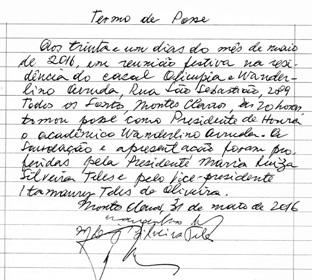 Termo de Posse
Aos trinta e um dias do mês de maio
de 2016, em reunião festiva na resi-
dência do casal Olímpia e Wander-
lino Arruda, Rua São Sebastião, 209
Todos os Santos, Montes Claros, às 20 horas
tomou posse como Presidente de Honra
o acadêmico Wanderlino Arruda. A
saudação e apresentação foram pro-
feridas pela Presidente Maria Luiza
Silveira Teles e pelo vice-presidente
Itamaury Teles de Oliveira.
Montes Claros, 31 de maio de 2016
Silveira Teles